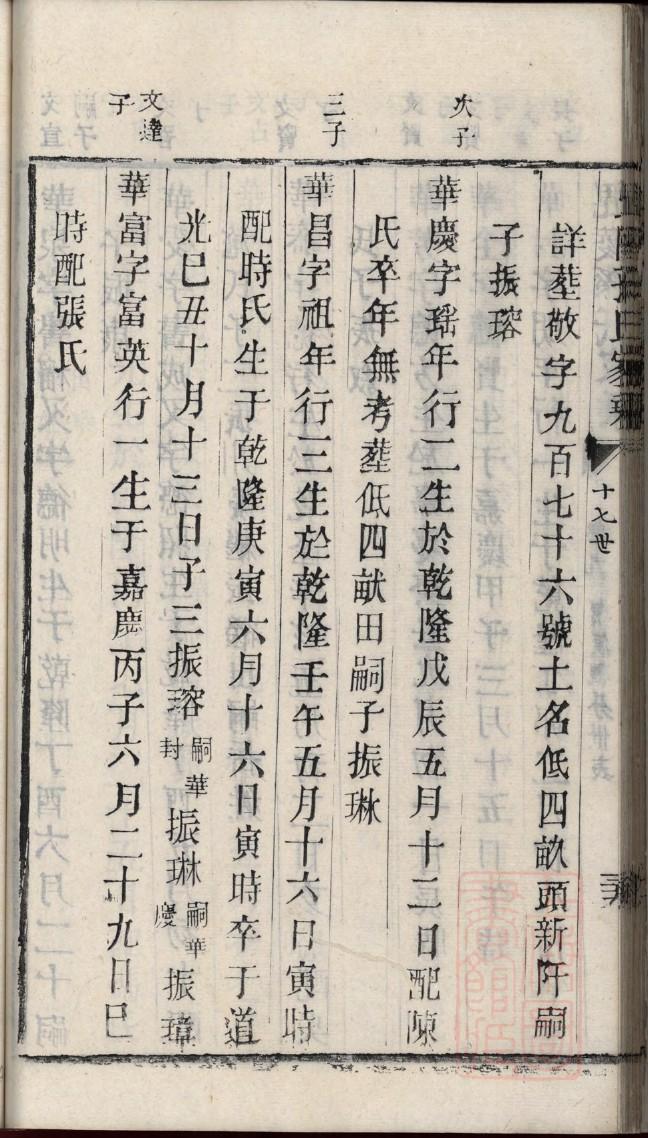 氏家乘
十七世
詳塟敬字九百七十六號土名低四畝頭新阡嗣
子振瑢
次子
華慶字瑤年行二生於乾隆戊辰五月十二日配陳
氏卒年無考塟低四畝田嗣子振琳
三子
華昌字祖年行三生於乾隆壬午五月十六日寅時
配時氏生于乾隆庚寅六月十六日寅時卒于道
光巳丑十月十三日子三振瑢嗣華封振琳嗣華慶振璋
文達子
華富字富英行一生于嘉慶丙子六月二十九日巳
時配張氏